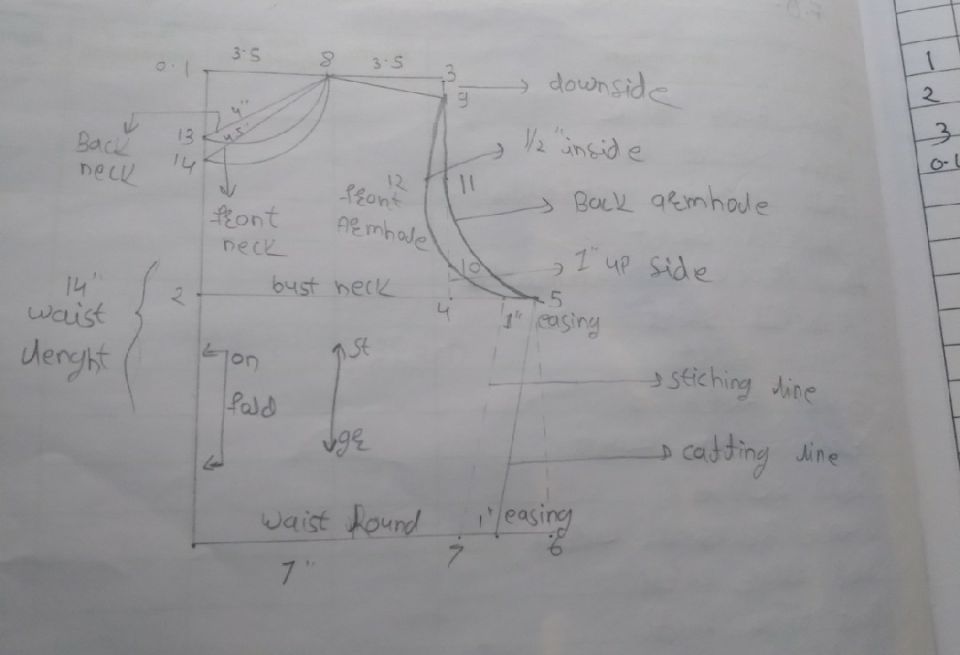 3.5 8 3.5
0.1 3
9 → downside
4"
4.5"
13
14
Back
neck
front
neck
12
front
Armhole
11
1/2" inside
Back armhole
10
1" up side
14"
waist
lenght
2 bust neck 4 5
1" easing
on
fold
St
gr
stiching line
catting line
Waist Round 1" easing
7 6
7"
1
2
3